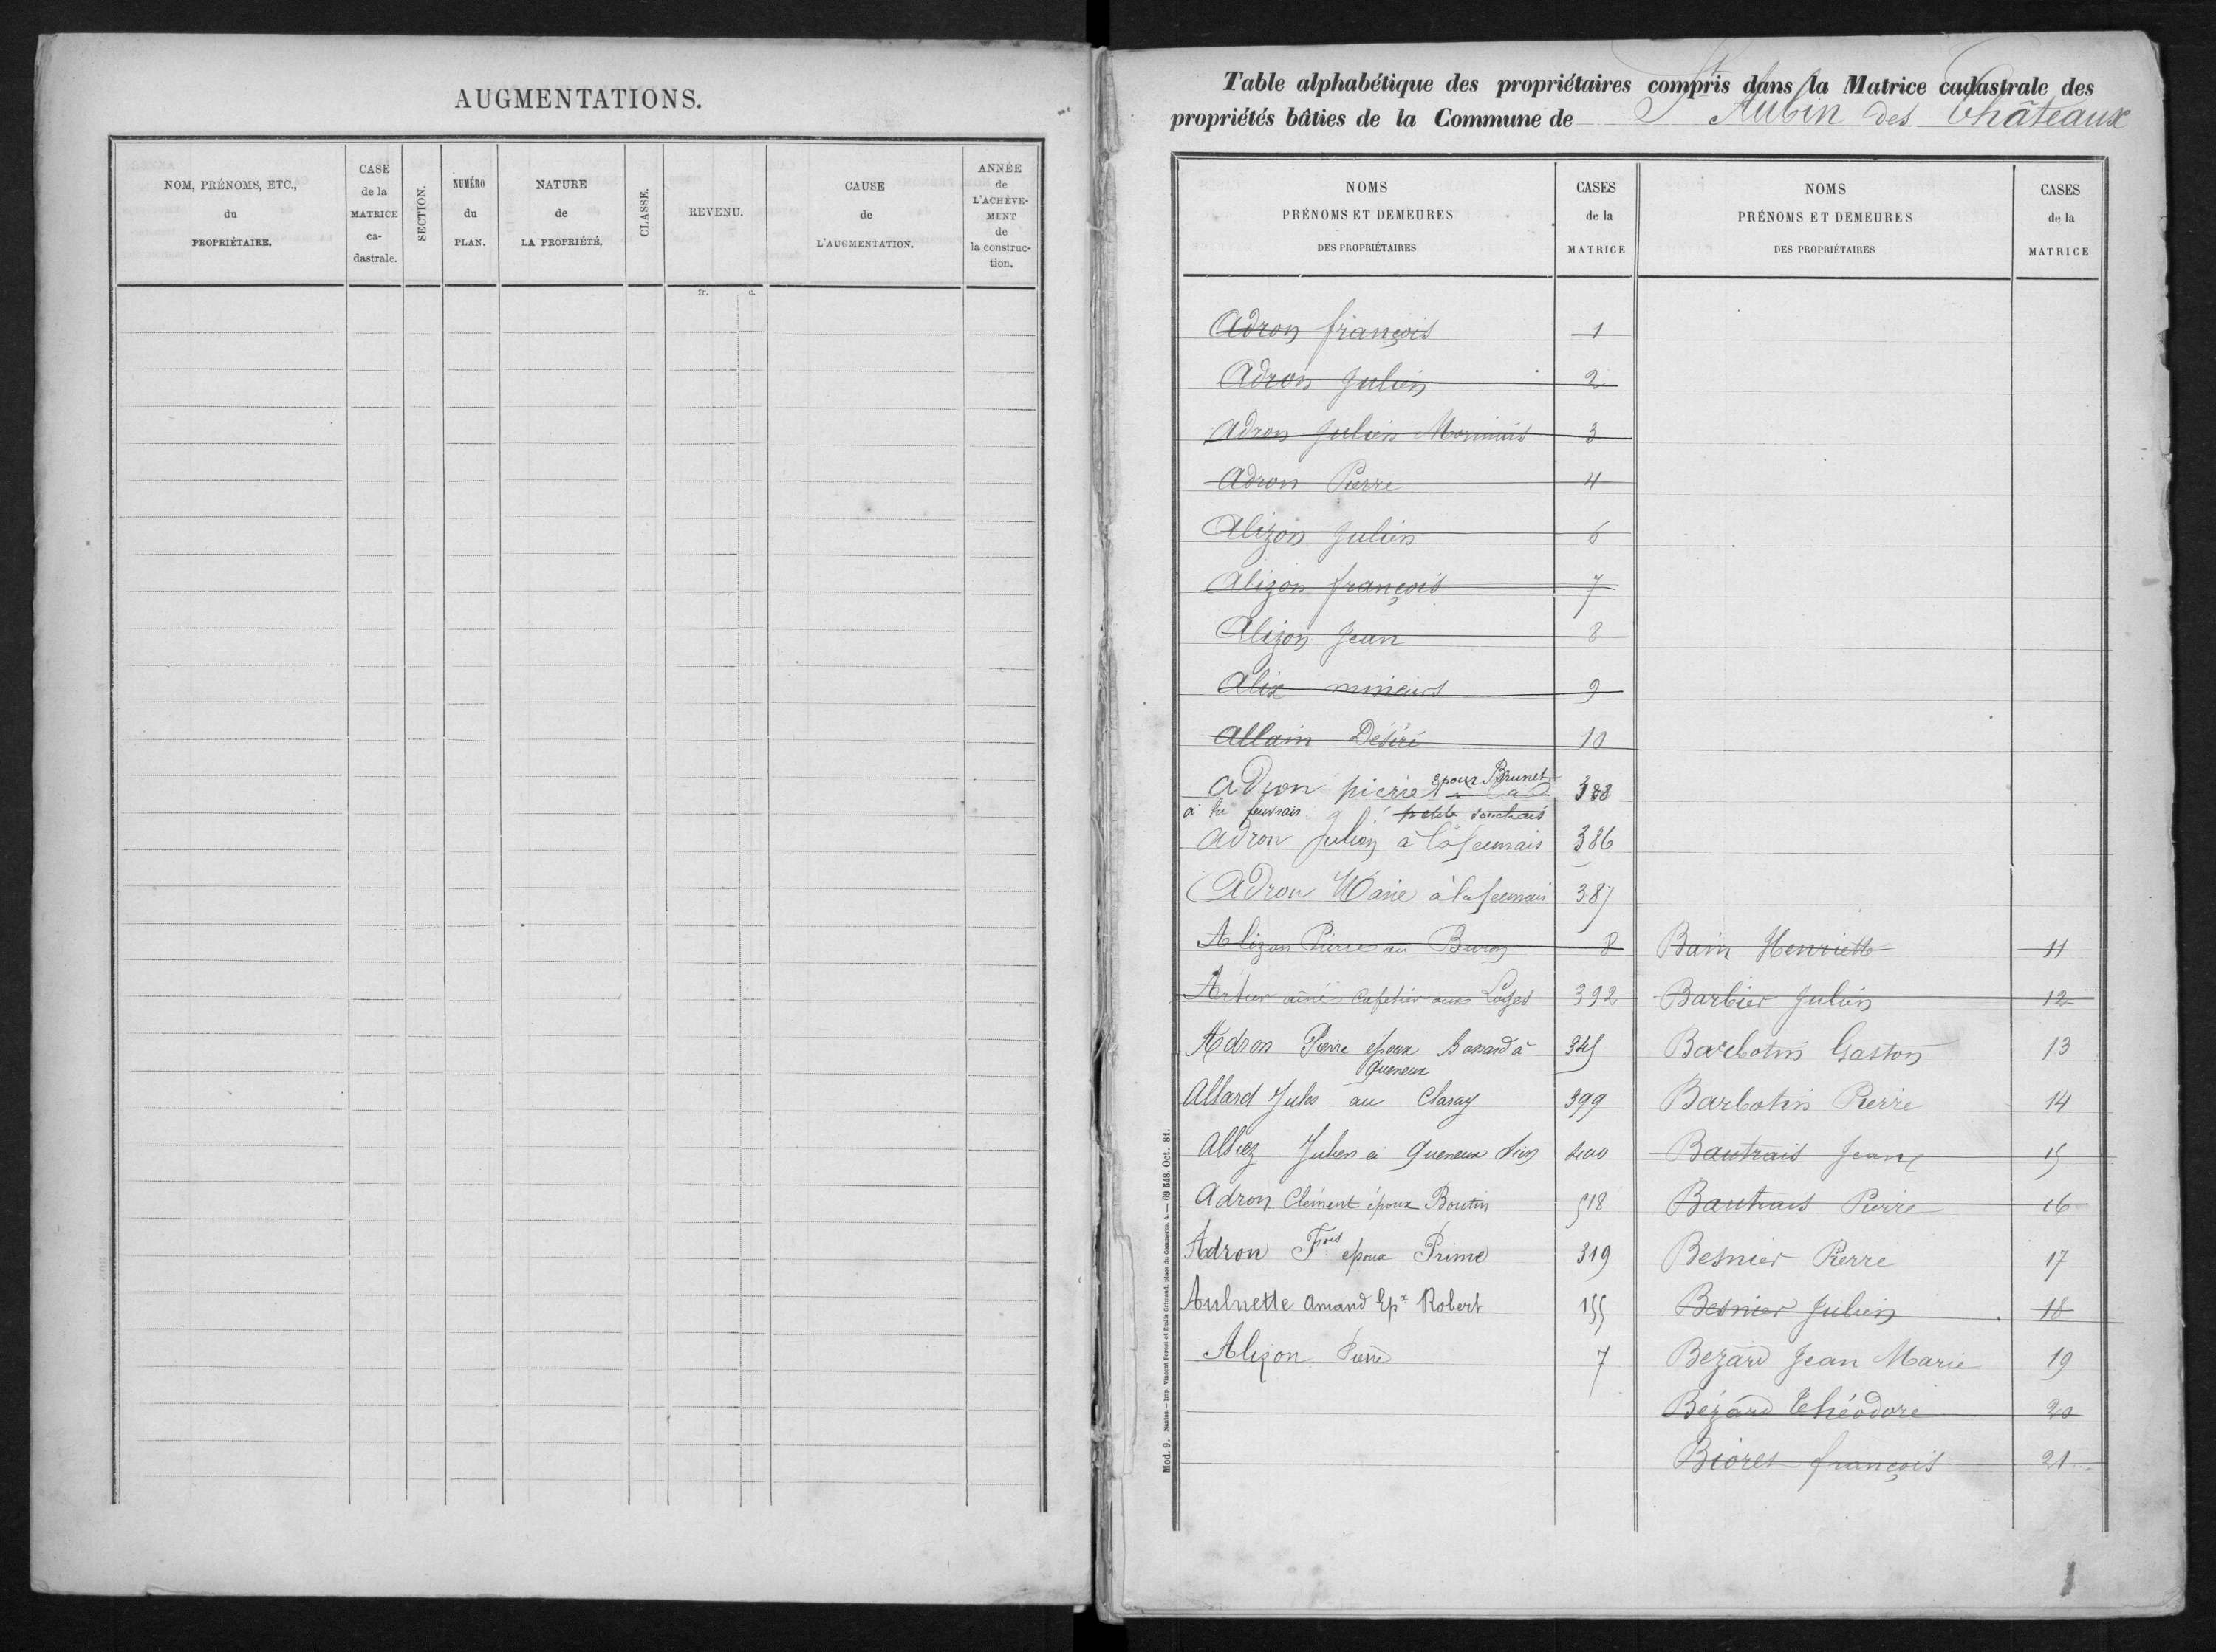 AUGMENTATIONS.
NOM, PRÉNOMS, ETC.,
du
PROPRIÉTAIRE.
CASE
de la
MATRICE
ca-
dastrale.
SECTION.
NUMÉRO
du
PLAN.
NATURE
de
LA PROPRIÉTÉ.
CLASSE.
REVENU.
CAUSE
de
L'AUGMENTATION.
ANNÉE
de
L'ACHÈVE-
MENT
de
la construc-
tion.
fr. c.
Table alphabétique des propriétaires compris dans la Matrice cadastrale des
propriétés bâties de la Commune de St Aubin des Châteaux
NOMS
PRÉNOMS ET DEMEURES
DES PROPRIÉTAIRES
CASES
de la
MATRICE
NOMS
PRÉNOMS ET DEMEURES
DES PROPRIÉTAIRES
CASES
de la
MATRICE
Adron françois 1
Adron Julien 2
Adron Julien 3
Adron Pierre 4
Alizon Julien 6
Alizon françois 7
Alizon Jean 8
Alix mineurs 9
Allain Désiré 10
Adron pierre époux Brunet 388
à la petite
Adron Julien à la 386
Adron Marie à la 387
Alizon Pierre au Buron 8
Artur aîné Cafetier aux Loges 392
Adron Pierre époux à 345
Queneux
Allard Jules au Claray 399
Julien à Queneux 400
Adron Clément époux Boutin 518
Adron Fois époux Prime 319
Aulnette Amand Epx Robert 155
Alizon Pierre 7
Bain Henriette 11
Barbier Julien 12
Barbotin Gaston 13
Barbotin Pierre 14
Bautrais Jean 15
Bautrais Pierre 16
Besnier Pierre 17
Besnier Julien 18
Bezard Jean Marie 19
Bézard Théodore 20
Bioret françois 21
Mod. 9. Nantes — Imp. Vincent Forest et Émile Grimaud, place du Commerce, 4. — 69 548. Oct. 81.